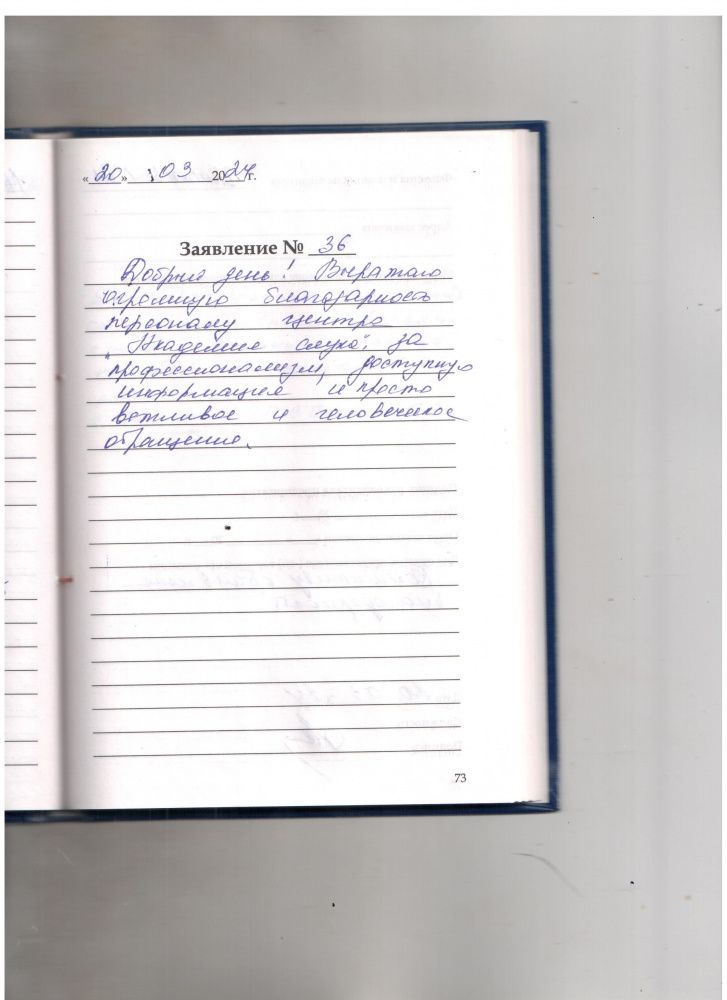 «20» 03 2024г.
Заявление № 36
Добрый день! Выражаю
огромную благодарность
персоналу центра
"Академия слуха", за
профессионализм, доступную
информацию и просто
вежливое и человеческое
обращение.
73